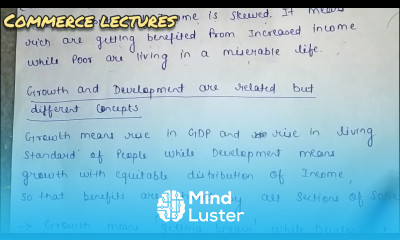 COMMERCE LECTURES
me is skewed. It means
rich are getting benefited from Increased income
while Poor are living in a miserable life.
Growth and Development are related but
different Concepts
Growth means rise in GDP and rise in living
Standard of People while Development means
growth with equitable distribution of Income,
so that benefits are by all Sections of
Mind
Luster
→ Growth means getting while